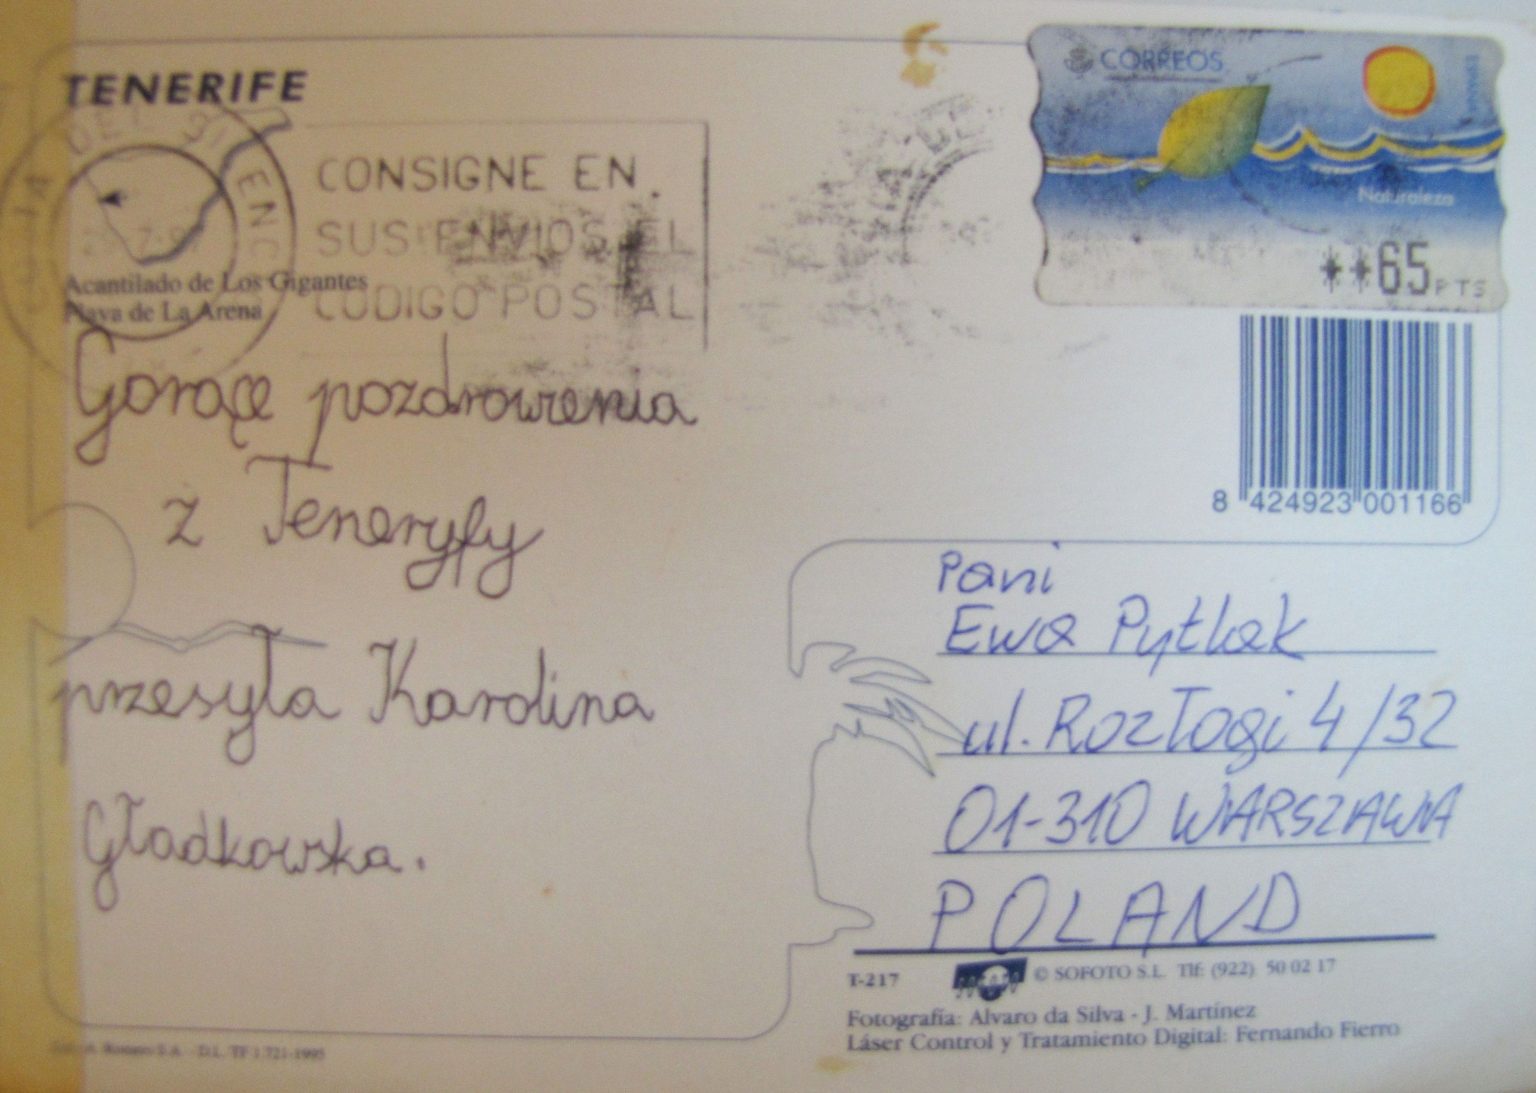 TENERIFE
CONSIGNE EN
SUS ENVIOS EL
CODIGO POSTAL
Acantilado de Los Gigantes
Playa de La Arena
Gorące pozdrowienia
z Teneryfy
przesyła Karolina
Gładkowska.
CORREOS
ESPAÑA
Naturaleza
**65 PTS
8 424923 001166
Pani
Ewa Pytlak
ul. Rozłogi 4/32
01-310 WARSZAWA
POLAND
T-217
© SOFOTO S.L. Tlf: (922) 50 02 17
Fotografía: Alvaro da Silva - J. Martínez
Láser Control y Tratamiento Digital: Fernando Fierro
D.L. TF 1.721-1995